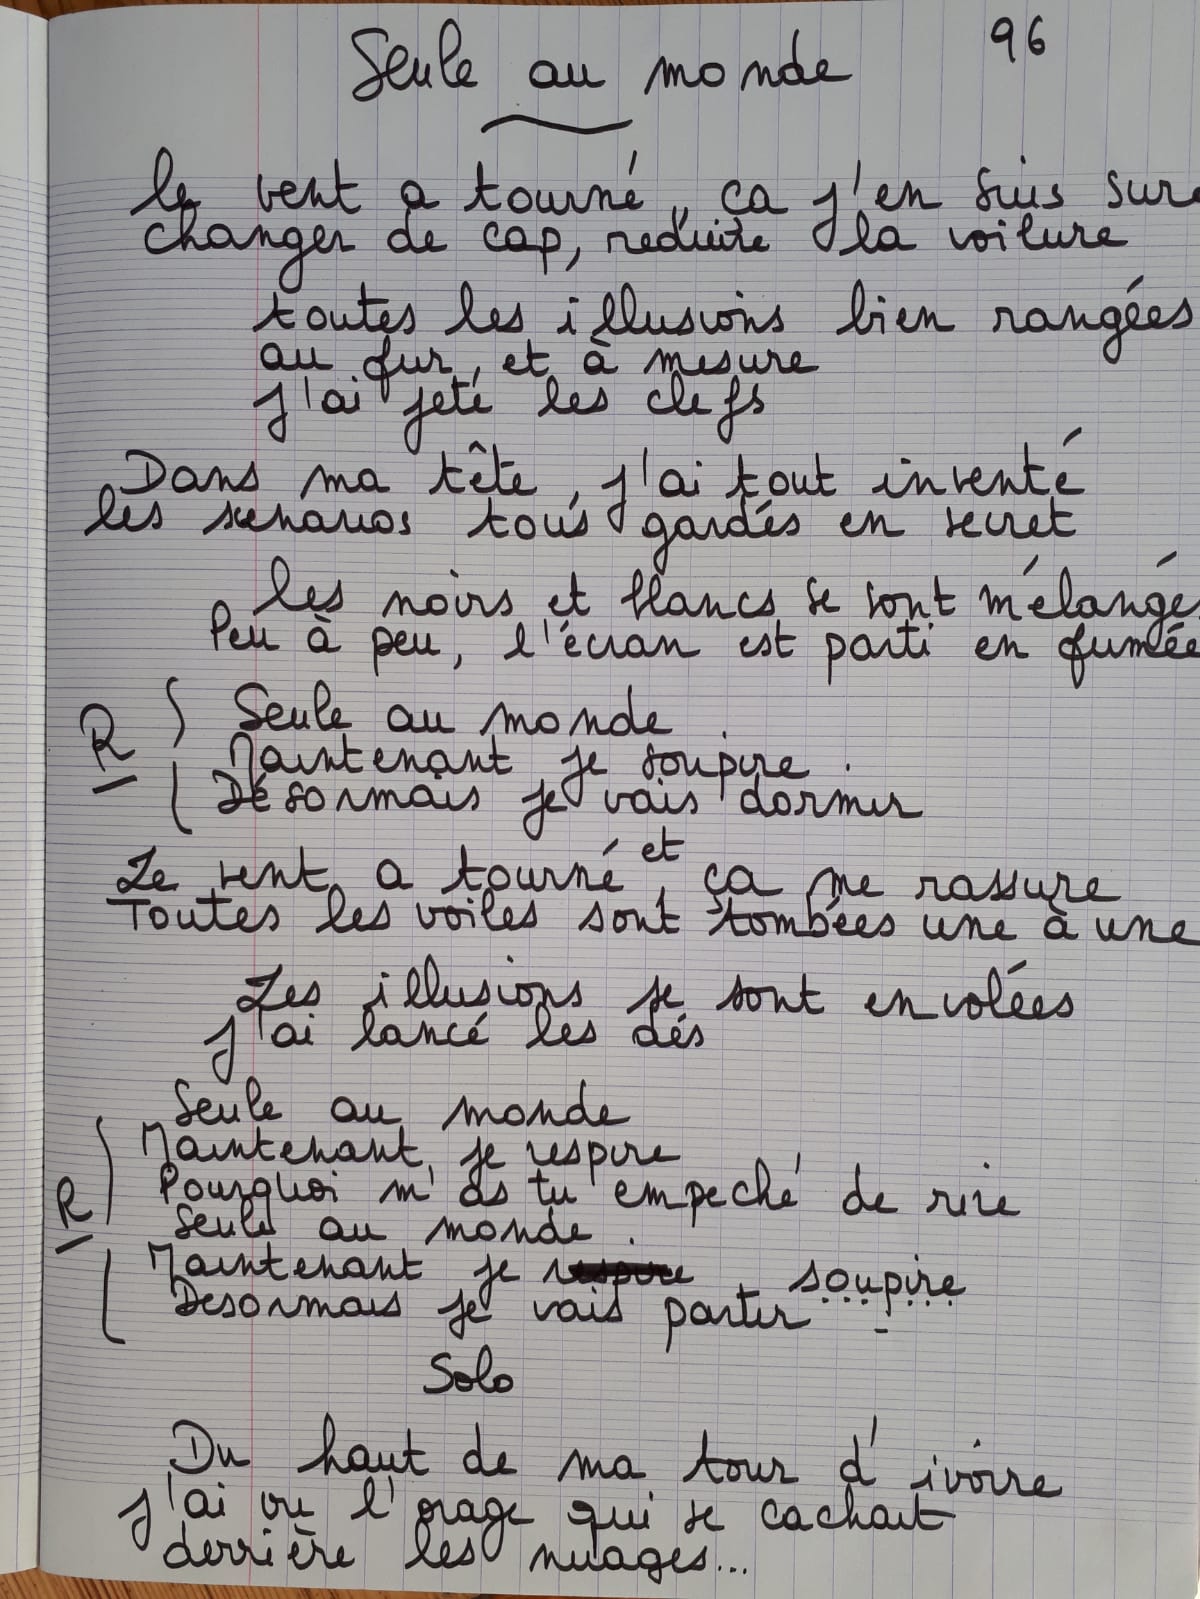 96
Seule au monde
le vent a tourné, ça j'en suis sure
changer de cap, reduire la voilure
toutes les illusions bien rangées
au fur, et à mesure
j'ai jeté les clefs
Dans ma tête, j'ai tout inventé
les scenarios tous gardés en secret
les noirs et blancs se sont mélangés
Peu à peu, l'écran est parti en fumée
Seule au monde
R Maintenant je soupire.
Désormais je vais dormir
Le vent a tourné, et ça me rassure
Toutes les voiles sont tombées une à une
Les illusions se sont envolées
j'ai lancé les dés
Seule au monde
Maintenant, je respire
Pourquoi m'as tu empeché de rire
R Seule au monde.
Maintenant je respire soupire
Desormais je vais partir
Solo
Du haut de ma tour d'ivoire
j'ai vu l'orage qui se cachait
derrière les nuages...